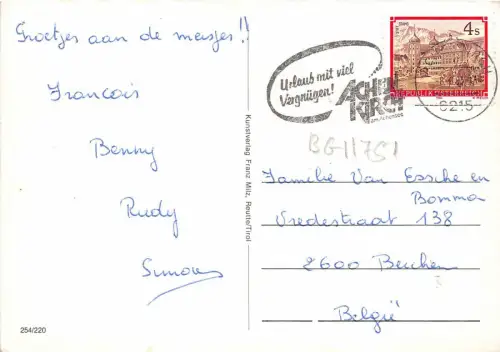 Groetjes aan de meisjes!!
Francois
Benny
Rudy
Simons
254/220
Kunstverlag Franz Milz, Reutte/Tirol
Urlaub mit viel
Vergnügen!
ACHEN
KIRCH
am Achensee
6215
4 S
REPUBLIK ÖSTERREICH
BG11751
Familie Van Essche en
Bomma
Vredestraat 138
2600 Berchem
België